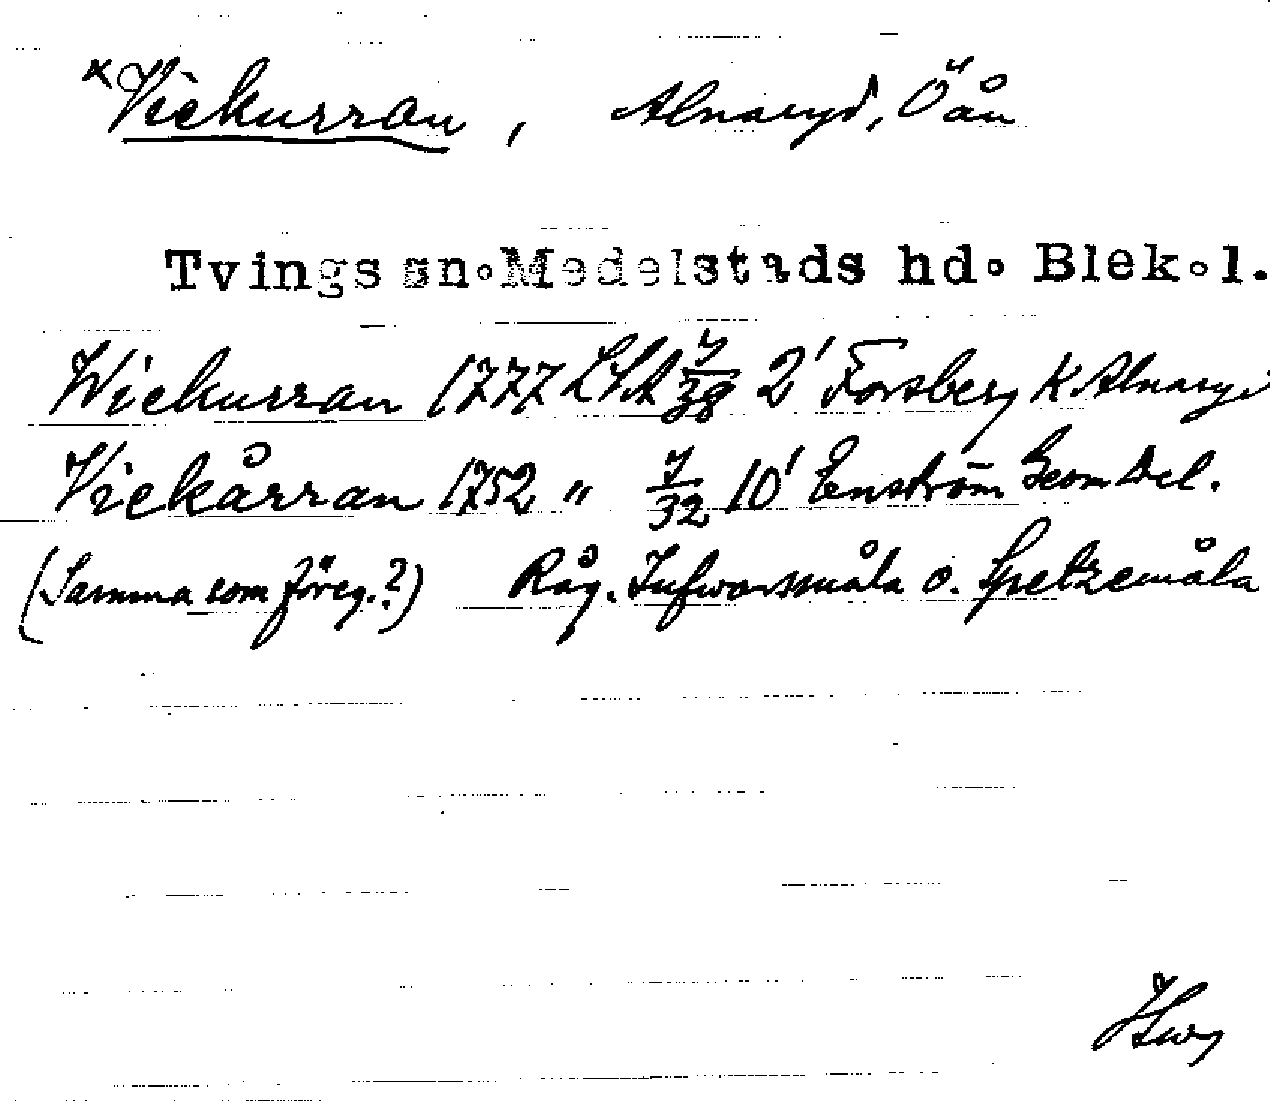 ×Vickurran, Alnaryd, Öån
Tvings sn. Medelstads hd. Blek. l.
Wickurran 1777 LSA 7/38 2' Forsberg K. Alnaryd
Vickårran 1752 " 7/32 10' Enström Geom Del.
(Samma som föreg.?) Råg. Iufwarsmåla o. Spetzemåla